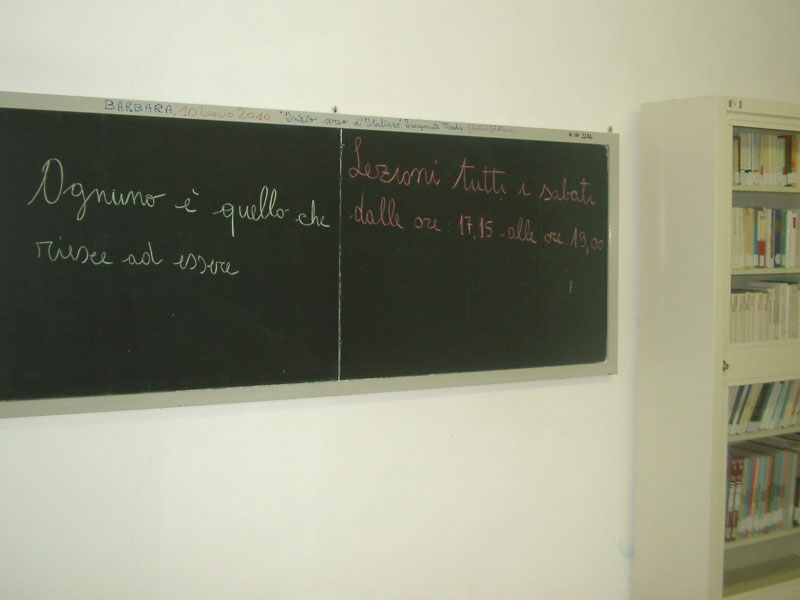 BARBARA, 10 Luglio 2010 "Inizio corso d'Italiano" Insegnante
Ognuno è quello che
riesce ad essere
Lezioni tutti i sabati
dalle ore: 17,15 alle ore 19,00
N° 3